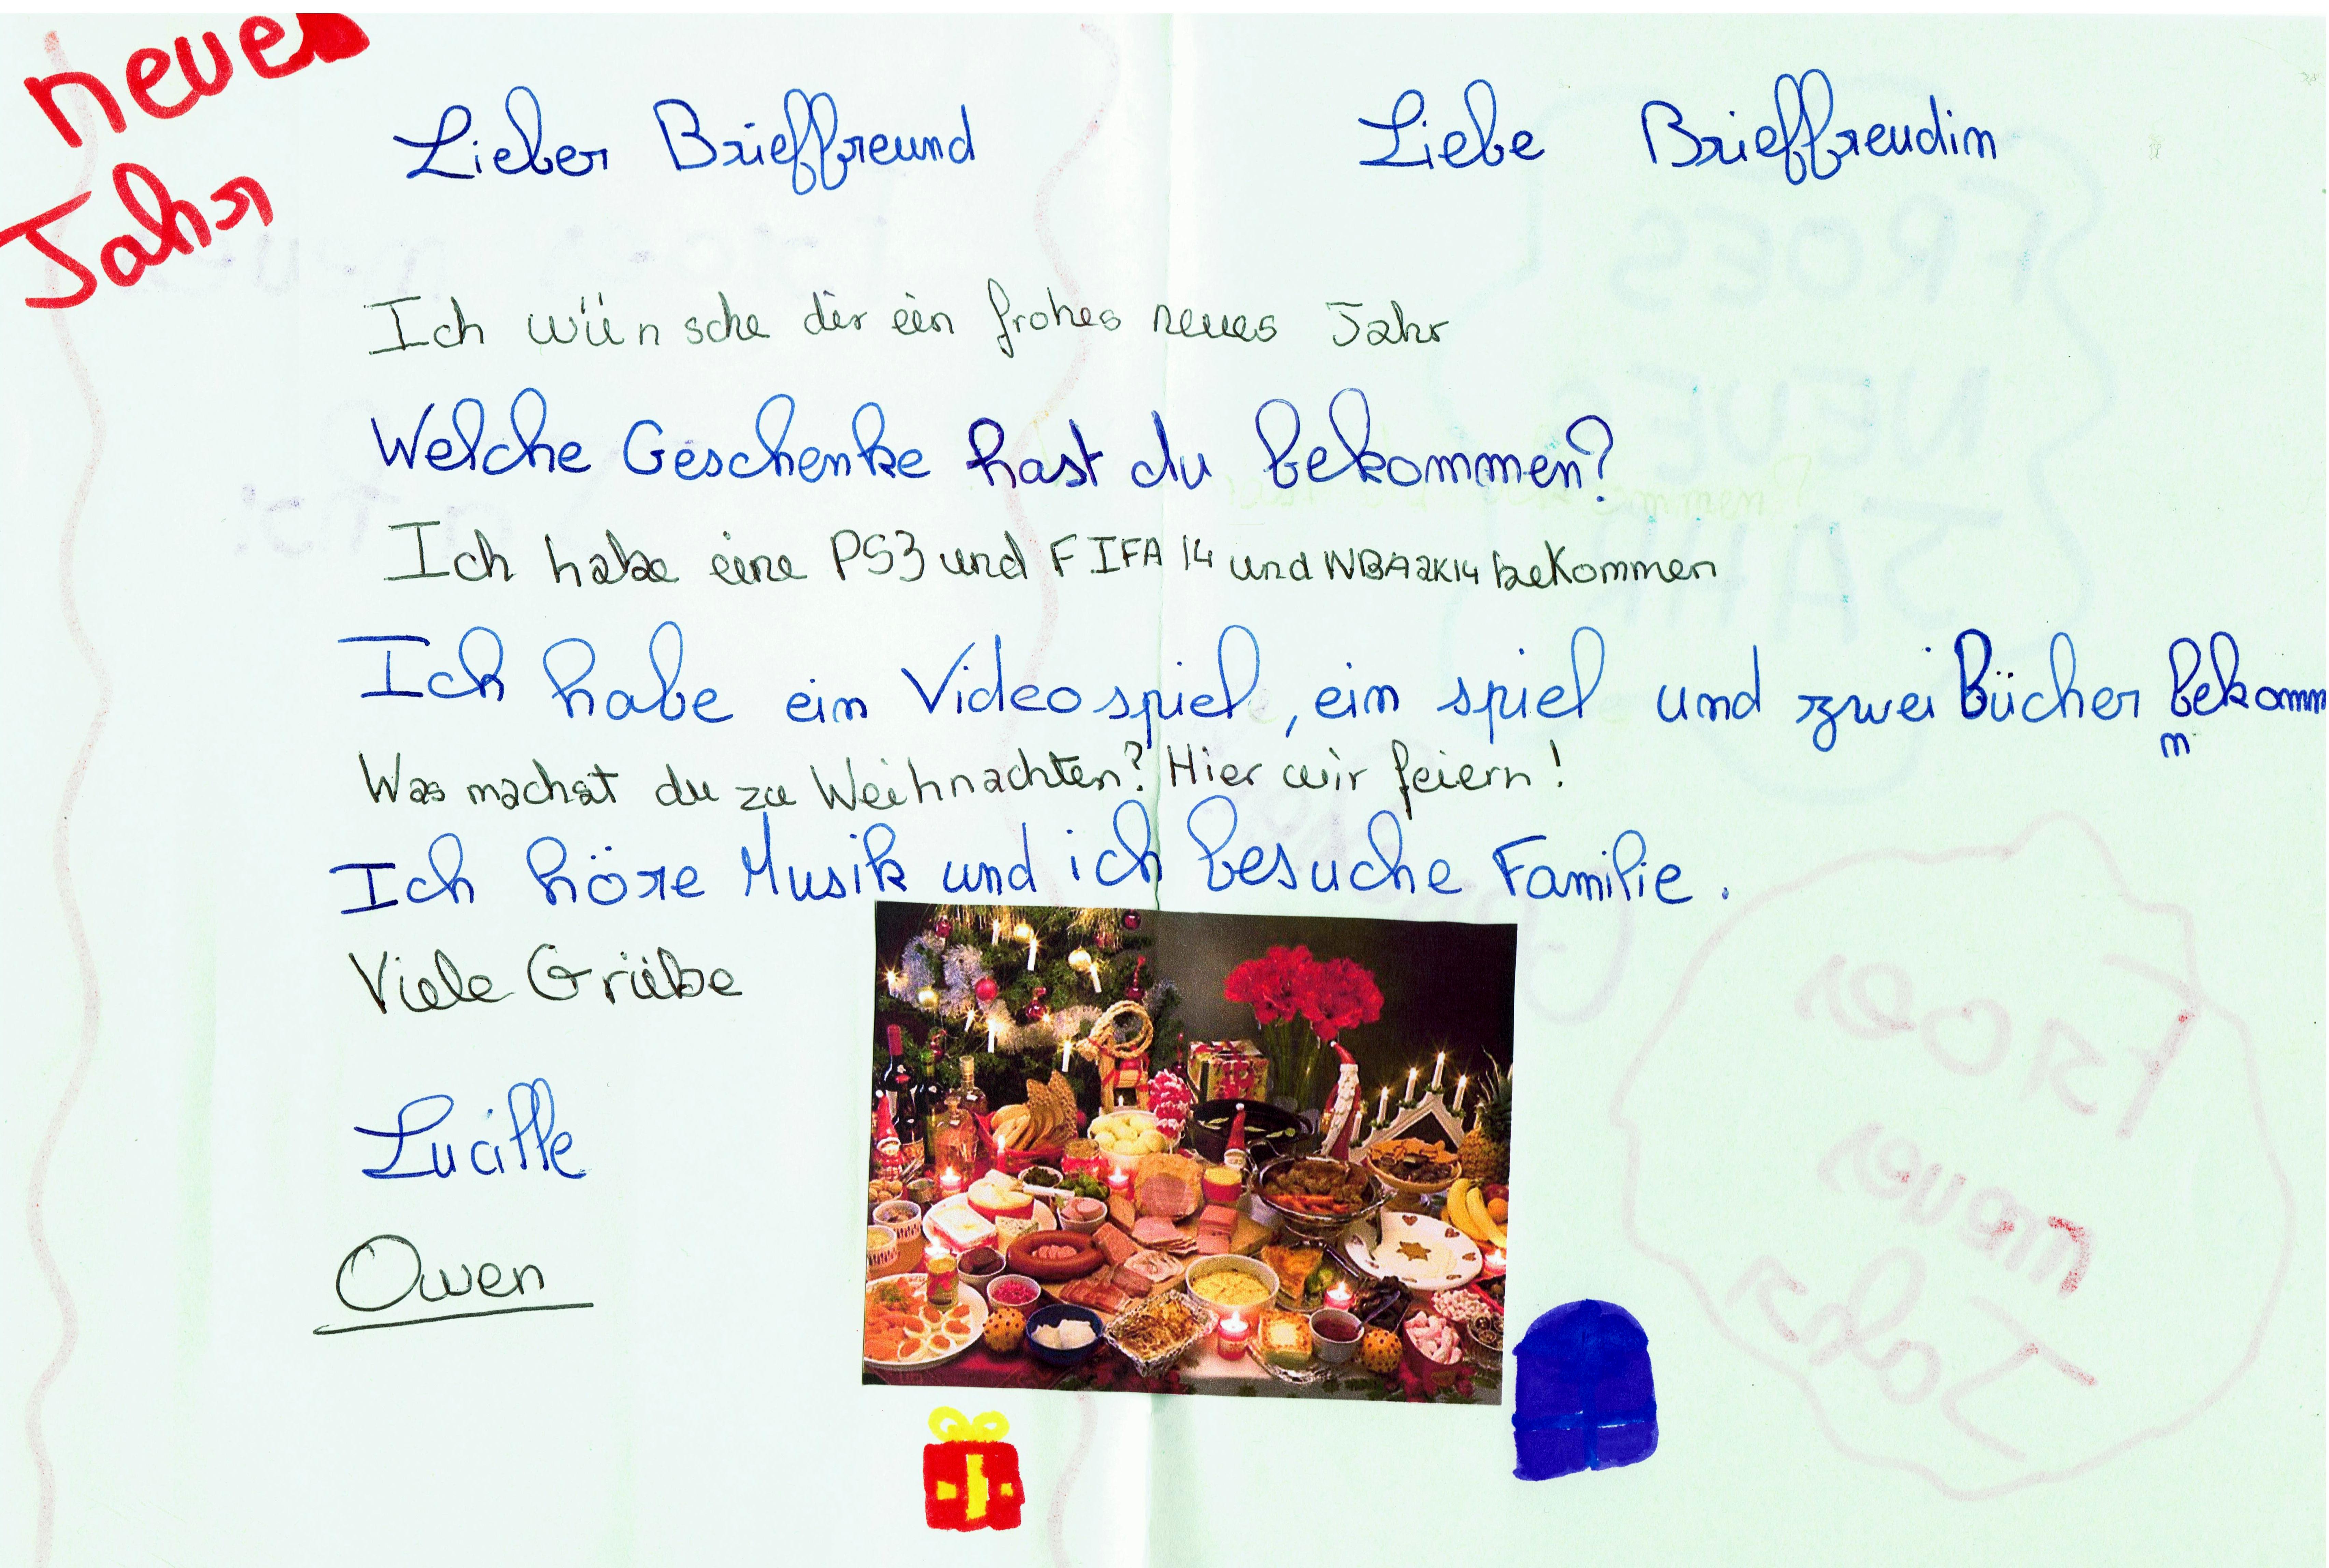 neues
Jahr
Lieber Brieffreund Liebe Brieffreudin
Ich wünsche dir ein frohes neues Jahr
Welche Geschenke hast du bekommen?
Ich habe eine PS3 und FIFA 14 und NBA2K14 bekommen
Ich habe ein Videospiel, ein spiel und zwei Bücher bekomm
Was machst du zu Weihnachten? Hier wir feiern!
Ich höre Musik und ich besuche Familie.
Viele Grüße
Lucille
Owen